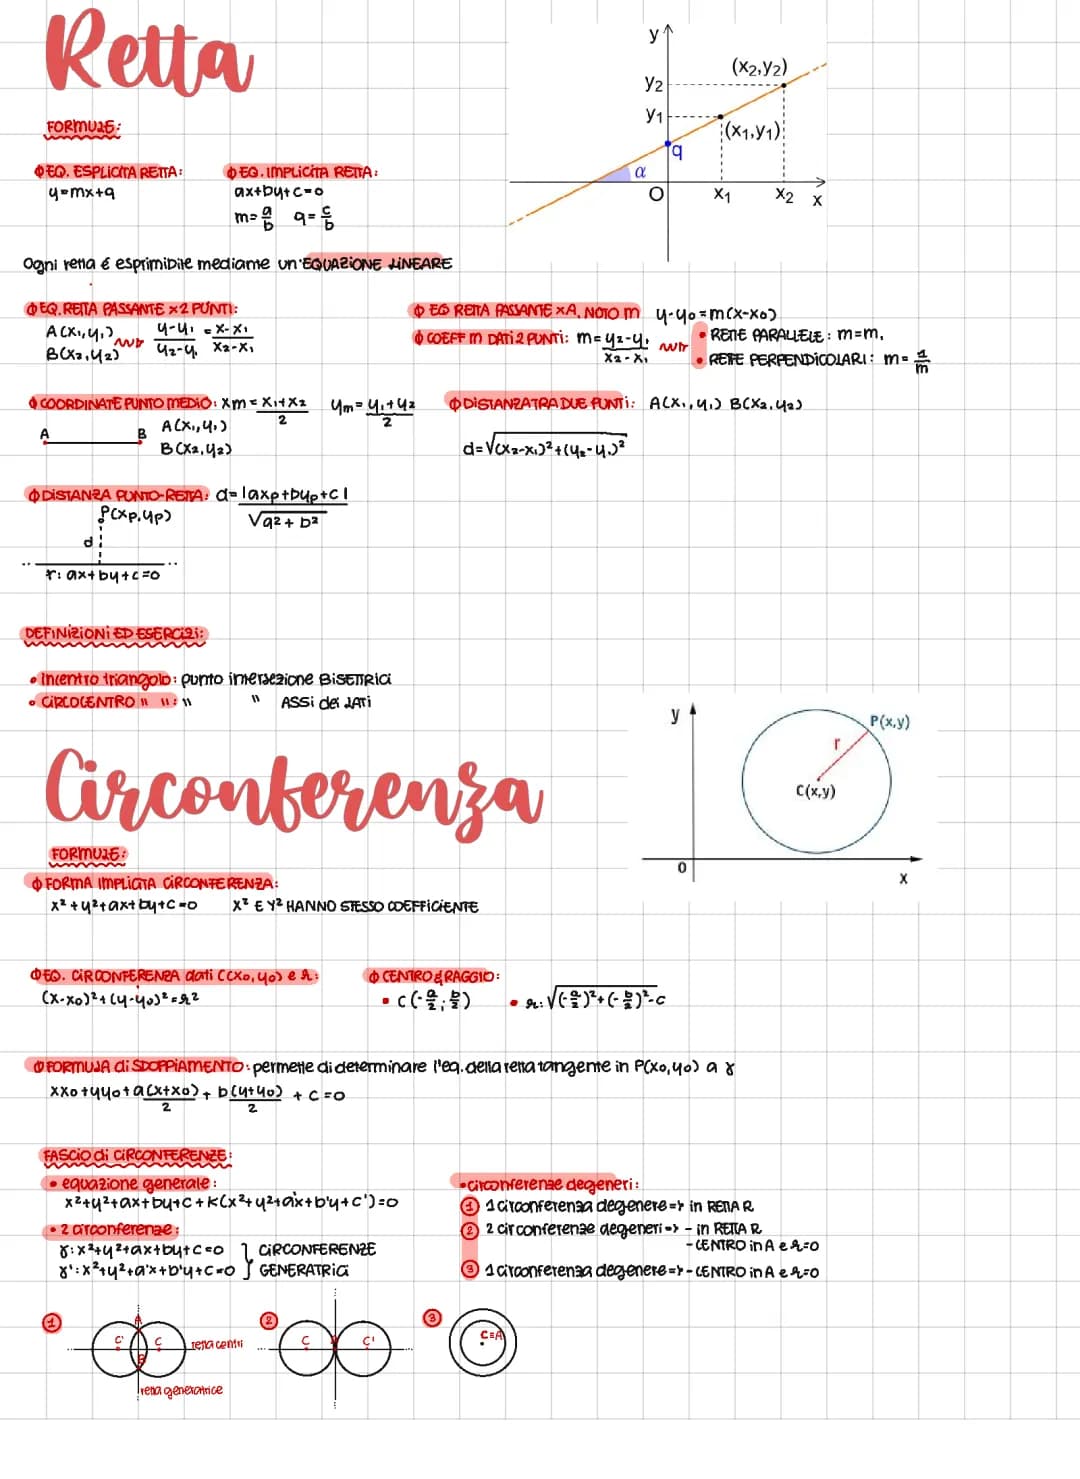 Retta
FORMULE:
EQ. ESPLICITA RETTA:
y=mx+q
EQ. IMPLICITA RETTA:
ax+by+c=0
m=a/b q=c/b
y
y2
y1
(x2,y2)
(x1,y1)
q
α
O
x1
x2
x
Ogni retta é esprimibile mediante un'EQUAZIONE LINEARE
EQ. RETTA PASSANTE x2 PUNTI:
A(x₁,y₁)
B(x₂,y₂)
y-y₁/y₂-y₁ = x-x₁/x₂-x₁
EQ RETTA PASSANTE xA, NOTO m y-y₀=m(x-x₀)
COEFF m DATI 2 PUNTI: m=y₂-y₁/x₂-x₁
• RETTE PARALLELE: m=m,
• RETTE PERPENDICOLARI: m=1/m
COORDINATE PUNTO MEDIO: xm=x₁+x₂/2 ym=y₁+y₂/2
A B
A(x₁,y₁)
B(x₂,y₂)
DISTANZA TRA DUE PUNTI: A(x₁,y₁) B(x₂,y₂)
d=√(x₂-x₁)²+(y₂-y₁)²
DISTANZA PUNTO-RETTA: d=|axp+byp+c|/√a²+b²
P(xp,yp)
d
r: ax+by+c=0
DEFINIZIONI ED ESERCIZI:
• Incentro triangolo: punto intersezione BISETTRICI
• CIRCOCENTRO " ": " " ASSI dei LATI
Circonferenza
y
P(x,y)
r
C(x,y)
0
x
FORMULE:
FORMA IMPLICITA CIRCONFERENZA:
x²+y²+ax+by+c=0 X² E Y² HANNO STESSO COEFFICIENTE
EQ. CIRCONFERENZA dati C(x₀,y₀) e r:
(x-x₀)²+(y-y₀)²=r²
CENTRO & RAGGIO:
• C(-a/2;b/2) • r: √(-a/2)²+(-b/2)²-c
FORMULA di SDOPPIAMENTO: permette di determinare l'eq. della retta tangente in P(x₀,y₀) a γ
xx₀+yy₀+a(x+x₀)/2+b(y+y₀)/2+c=0
FASCIO di CIRCONFERENZE:
• equazione generale:
x²+y²+ax+by+c+K(x²+y²+a'x+b'y+c')=0
• 2 circonferenze:
γ: x²+y²+ax+by+c=0
γ': x²+y²+a'x+b'y+c=0
} CIRCONFERENZE
GENERATRICI
• circonferenze degeneri:
1 1 circonferenza degenere => in RETTA R
2 2 circonferenze degeneri => - in RETTA R
- CENTRO in A e r=0
3 1 circonferenza degenere => - CENTRO in A e r=0
1
A
C' C
B
retta centri
retta generatrice
2
C C'
3
C≡A